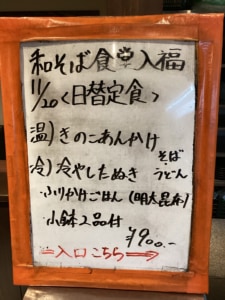 和そば食堂入福
11/20<日替定食>
温)きのこあんかけ
冷)冷やしたぬき そば うどん
・ふりかけごはん(明太昆布)
・小鉢2品付
¥900.-
⇒入口こちら⇒